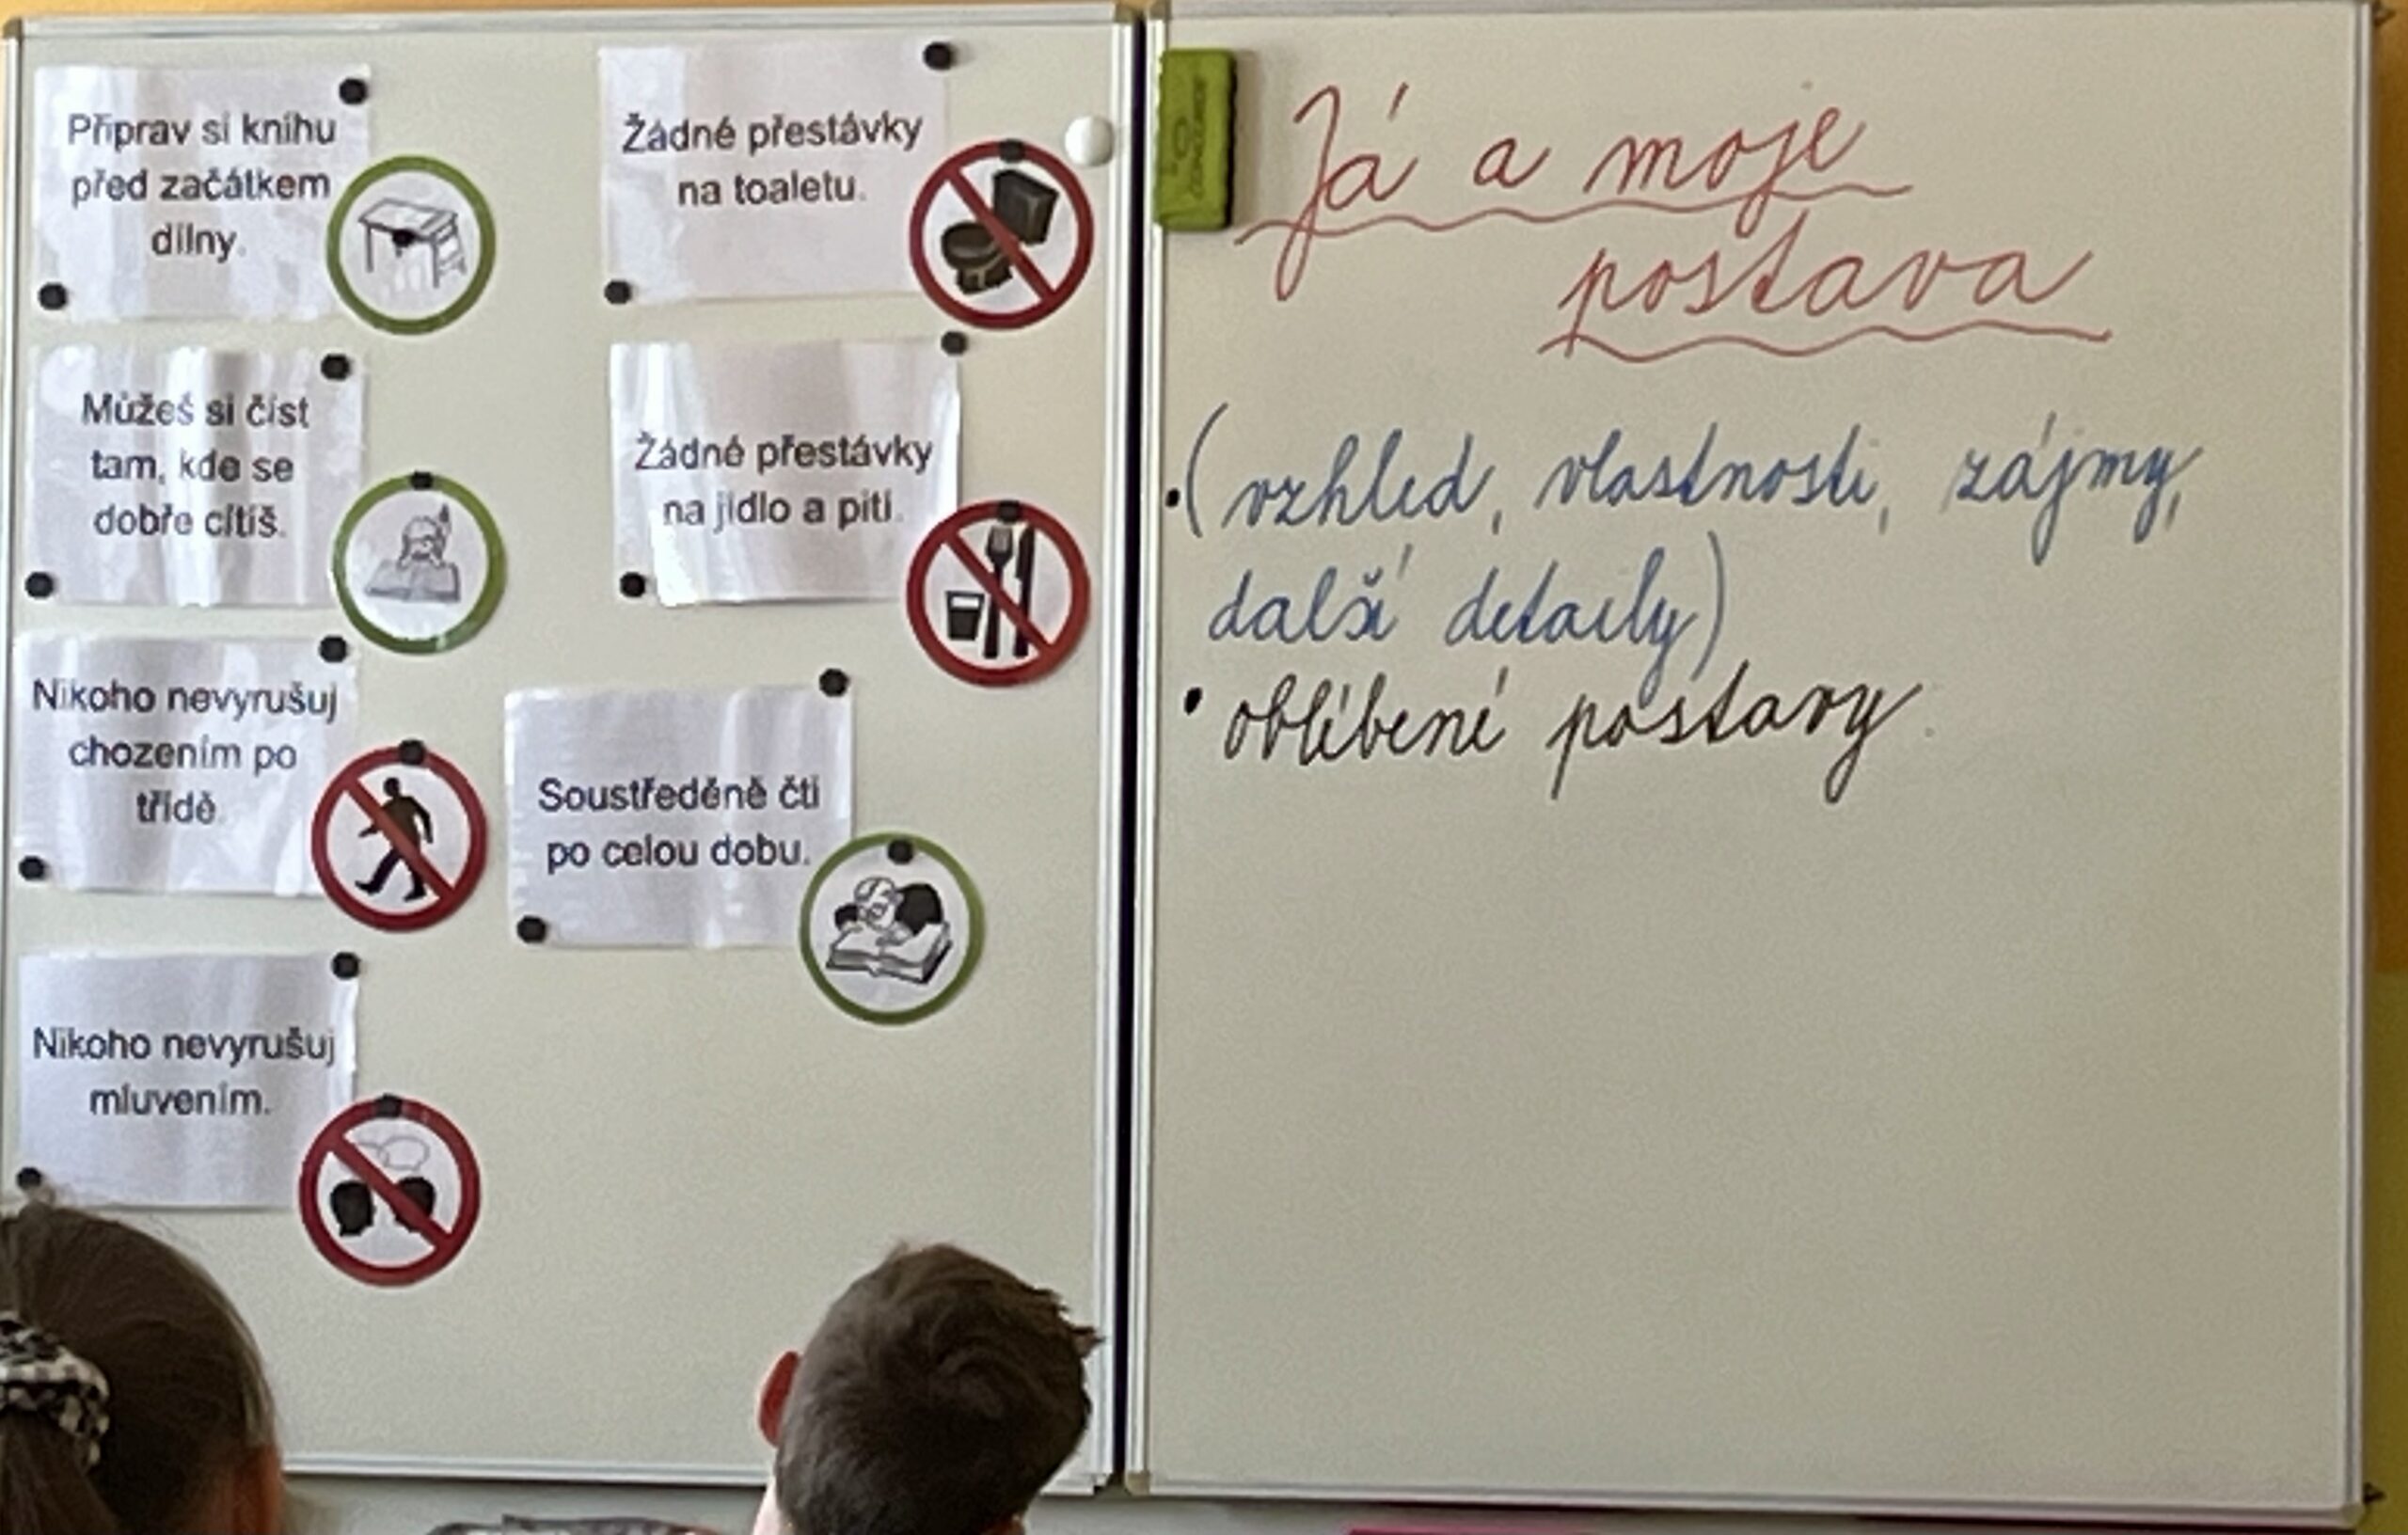 Připrav si knihu
před začátkem
dílny.
Můžeš si číst
tam, kde se
dobře cítíš.
Nikoho nevyrušuj
chozením po
třídě.
Nikoho nevyrušuj
mluvením.
Žádné přestávky
na toaletu.
Žádné přestávky
na jídlo a pití.
Soustředěně čti
po celou dobu.
Já a moje
postava
• (vzhled, vlastnosti, zájmy,
další detaily)
• oblíbené postavy